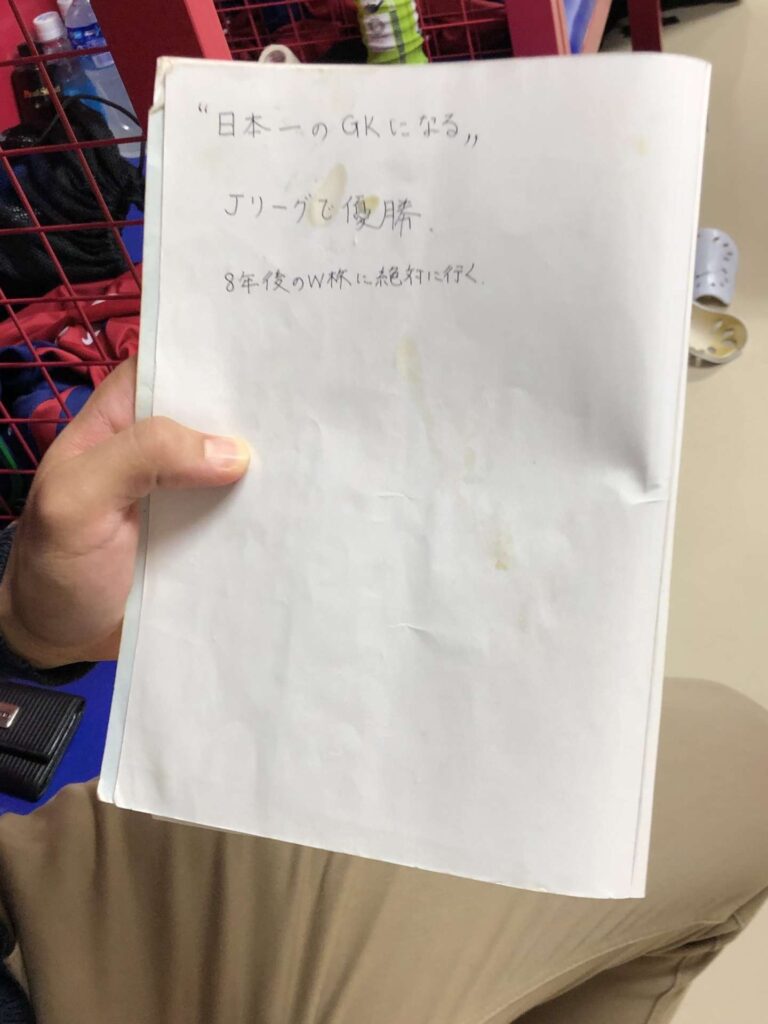 “日本一のGKになる„
Jリーグで優勝.
8年後のW杯に絶対に行く.